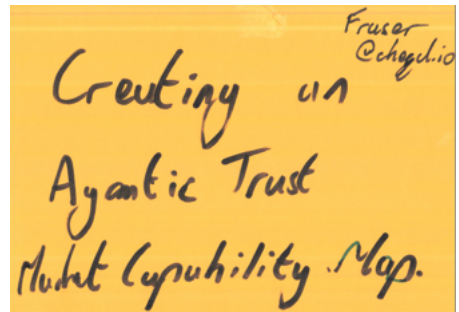 Fraser
@cheqd.io
Creating an
Agentic Trust
Market Capability Map.